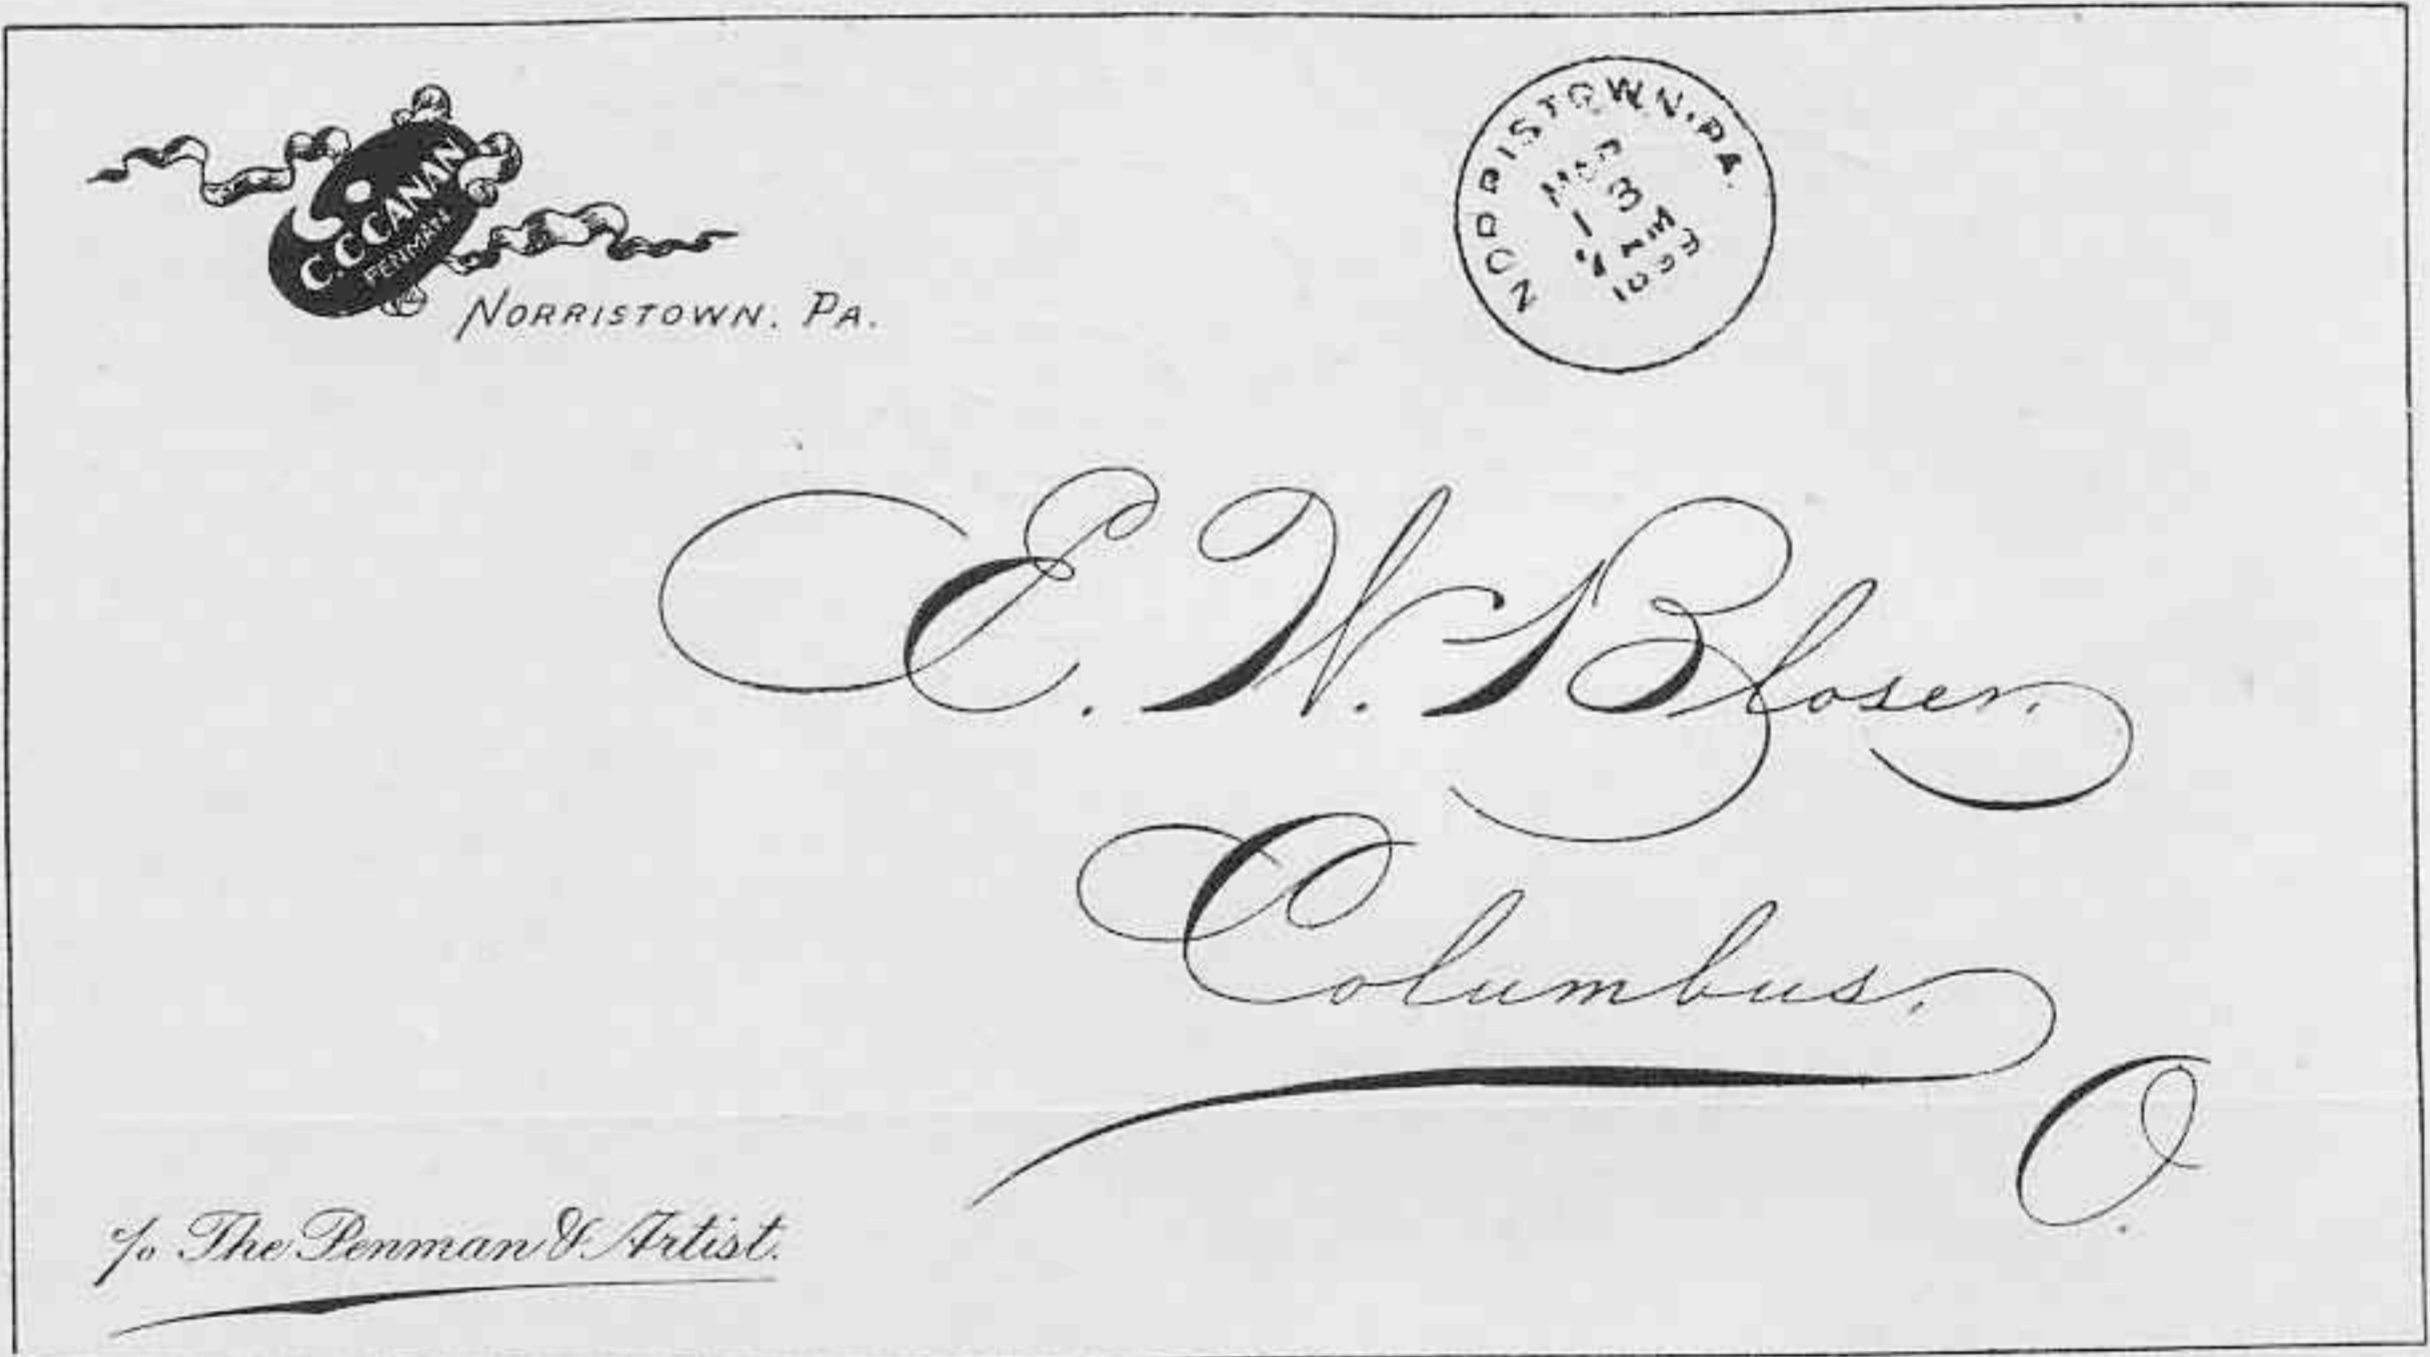 C. C. CANAN
PENMAN
NORRISTOWN. PA.
NORRISTOWN. PA.
E. W. Bloser,
Columbus,
O.
c/o The Penman & Artist.